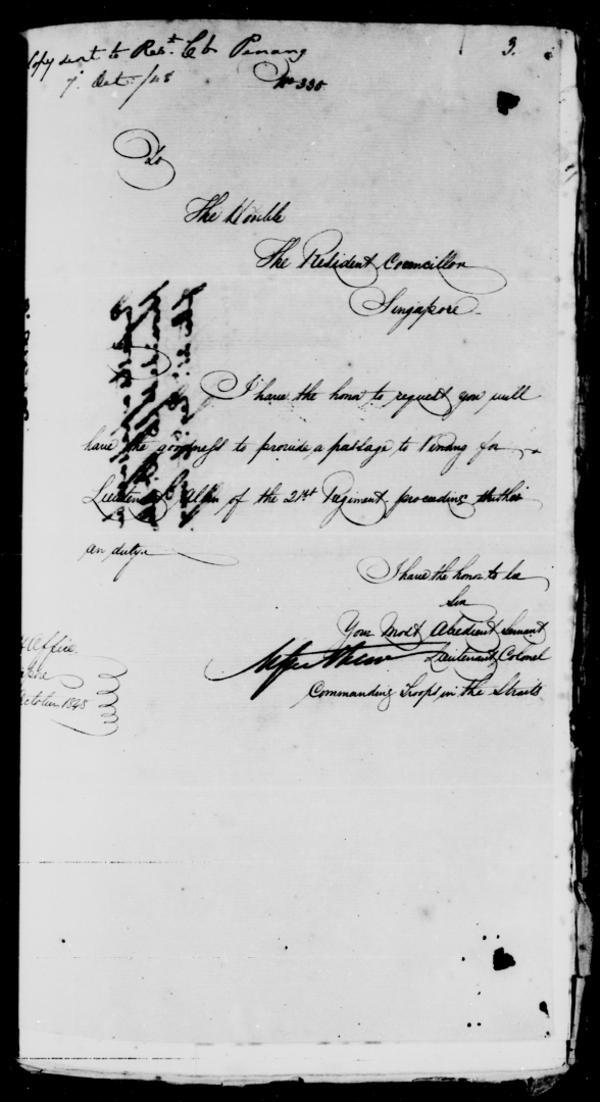 Copy sent to Rest. Cr. Penang
7. Oct. /48
3.
No 330
To
The Honble
The Resident Councillor
Singapore
I have the honor to request you will
have the goodness to provide a passage to Penang for
Lieutenant of the 21st Regiment proceeding thither
on duty
I have the honor to be
Sir
Your Most Obedient Servant
Lieutenant Colonel
Commanding Troops in the Straits
Office
October 1848